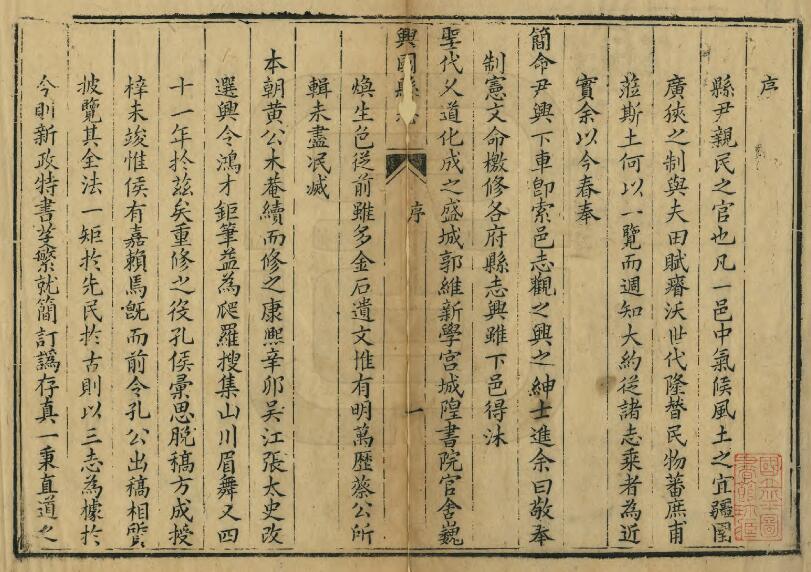 序
縣尹親民之官也凡一邑中氣候風土之宜疆圉
廣狹之制與夫田賦瘠沃世代隆替民物蕃庶甫
蒞斯土何以一覽而週知大約從諸志乘者為近
實余以今春奉
簡命尹興下車卽索邑志觀之興之紳士進余曰敬奉
制憲文命檄修各府縣志興雖下邑得沐
聖代久道化成之盛城郭維新學宮城隍書院官舍巍
興國縣
序
一
煥生色從前雖多金石遺文惟有明萬歷蔡公所
輯未盡泯滅
本朝黃公木菴續而修之康熙辛卯吳江張太史改
選興令鴻才鉅筆益為爬羅搜集山川眉舞又四
十一年於茲矣重修之役孔侯彙思脫稿方成授
梓未竣惟侯有嘉賴焉旣而前令孔公出稿相質
披覽其全法一矩於先民於古則以三志為據於
今則新政特書芟繁就簡訂譌存真一秉直道之